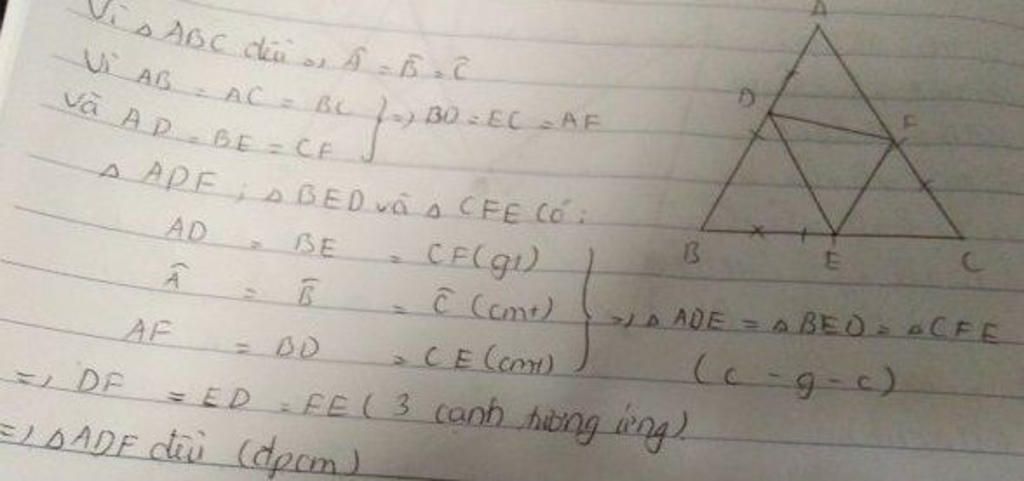 Vì △ABC đều => Â = B̂ = Ĉ
Vì AB = AC = BC
và AD = BE = CF
=> BD = EC = AF
△ ADF ; △ BED và △ CFE có :
AD = BE = CF (gt)
Â = B̂ = Ĉ (cmt)
AF = BD = CE (cmt)
=> △ ADE = △ BED = △ CFE
(c - g - c)
=> DF = ED = FE ( 3 cạnh tương ứng)
=> △ ADF đều (đpcm)
A
D
F
B
E
C